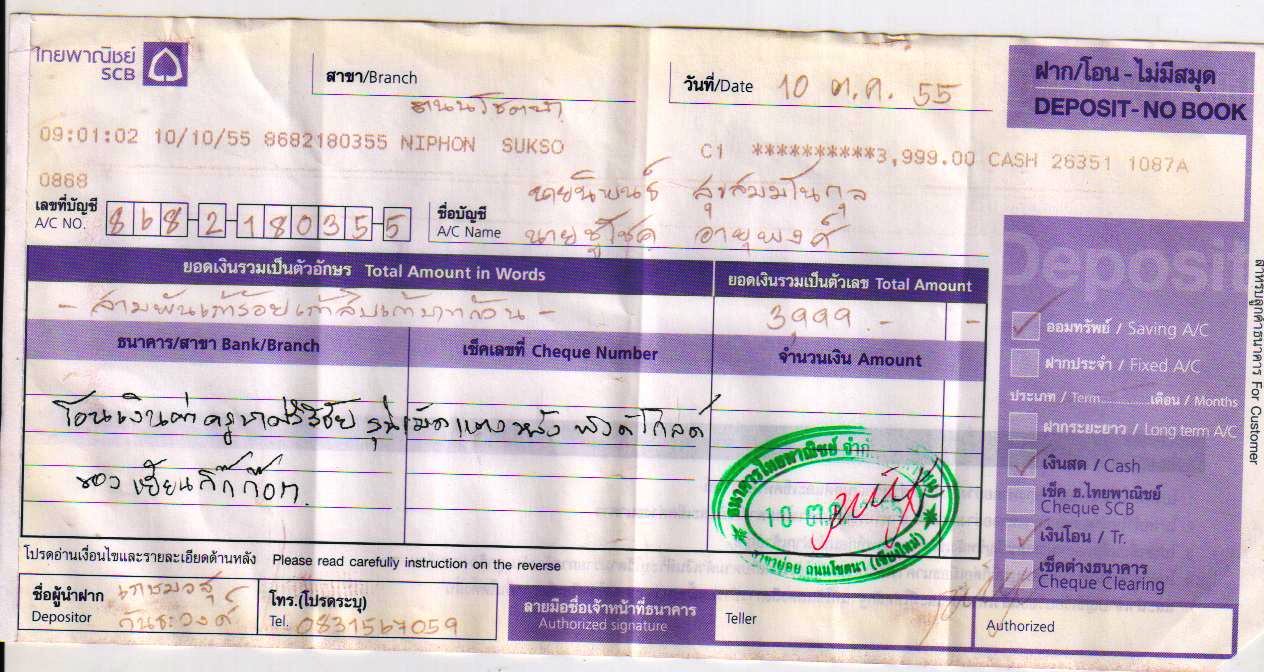 ไทยพาณิชย์
SCB
สาขา/Branch
ถนนโชตนา
วันที่/Date 10 ต.ค. 55
ฝาก/โอน - ไม่มีสมุด
DEPOSIT - NO BOOK
09:01:02 10/10/55 8682180355 NIPHON SUKSO C1 **********3,999.00 CASH 26351 1087A
0868
เลขที่บัญชี
A/C NO. 868-2-18035-5
ชื่อบัญชี
A/C Name
นายนิพนธ์ สุขสมมโนกุล
นายชูโชค อายุพงศ์
Deposit
ยอดเงินรวมเป็นตัวอักษร Total Amount in Words
ยอดเงินรวมเป็นตัวเลข Total Amount
- สามพันเก้าร้อยเก้าสิบเก้าบาทถ้วน -
3,999.- -
ธนาคาร/สาขา Bank/Branch
เช็คเลขที่ Cheque Number
จำนวนเงิน Amount
โอนเงินค่า ครูบาศรีวิชัย รุ่น
หลัง
ของ
ออมทรัพย์ / Saving A/C
ฝากประจำ / Fixed A/C
ประเภท / Term..............เดือน / Months
ฝากระยะยาว / Long term A/C
เงินสด / Cash
เช็ค ธ.ไทยพาณิชย์
Cheque SCB
เงินโอน / Tr.
เช็คต่างธนาคาร
Cheque Clearing
สำหรับลูกค้าธนาคาร For Customer
ธนาคารไทยพาณิชย์ จำกัด
10 ต.ค.
สาขาย่อย ถนนโชตนา (เชียงใหม่)
โปรดอ่านเงื่อนไขและรายละเอียดด้านหลัง Please read carefully instruction on the reverse
ชื่อผู้นำฝาก
Depositor
โทร.(โปรดระบุ)
Tel. 0831567059
ลายมือชื่อเจ้าหน้าที่ธนาคาร
Authorized signature
Teller
Authorized